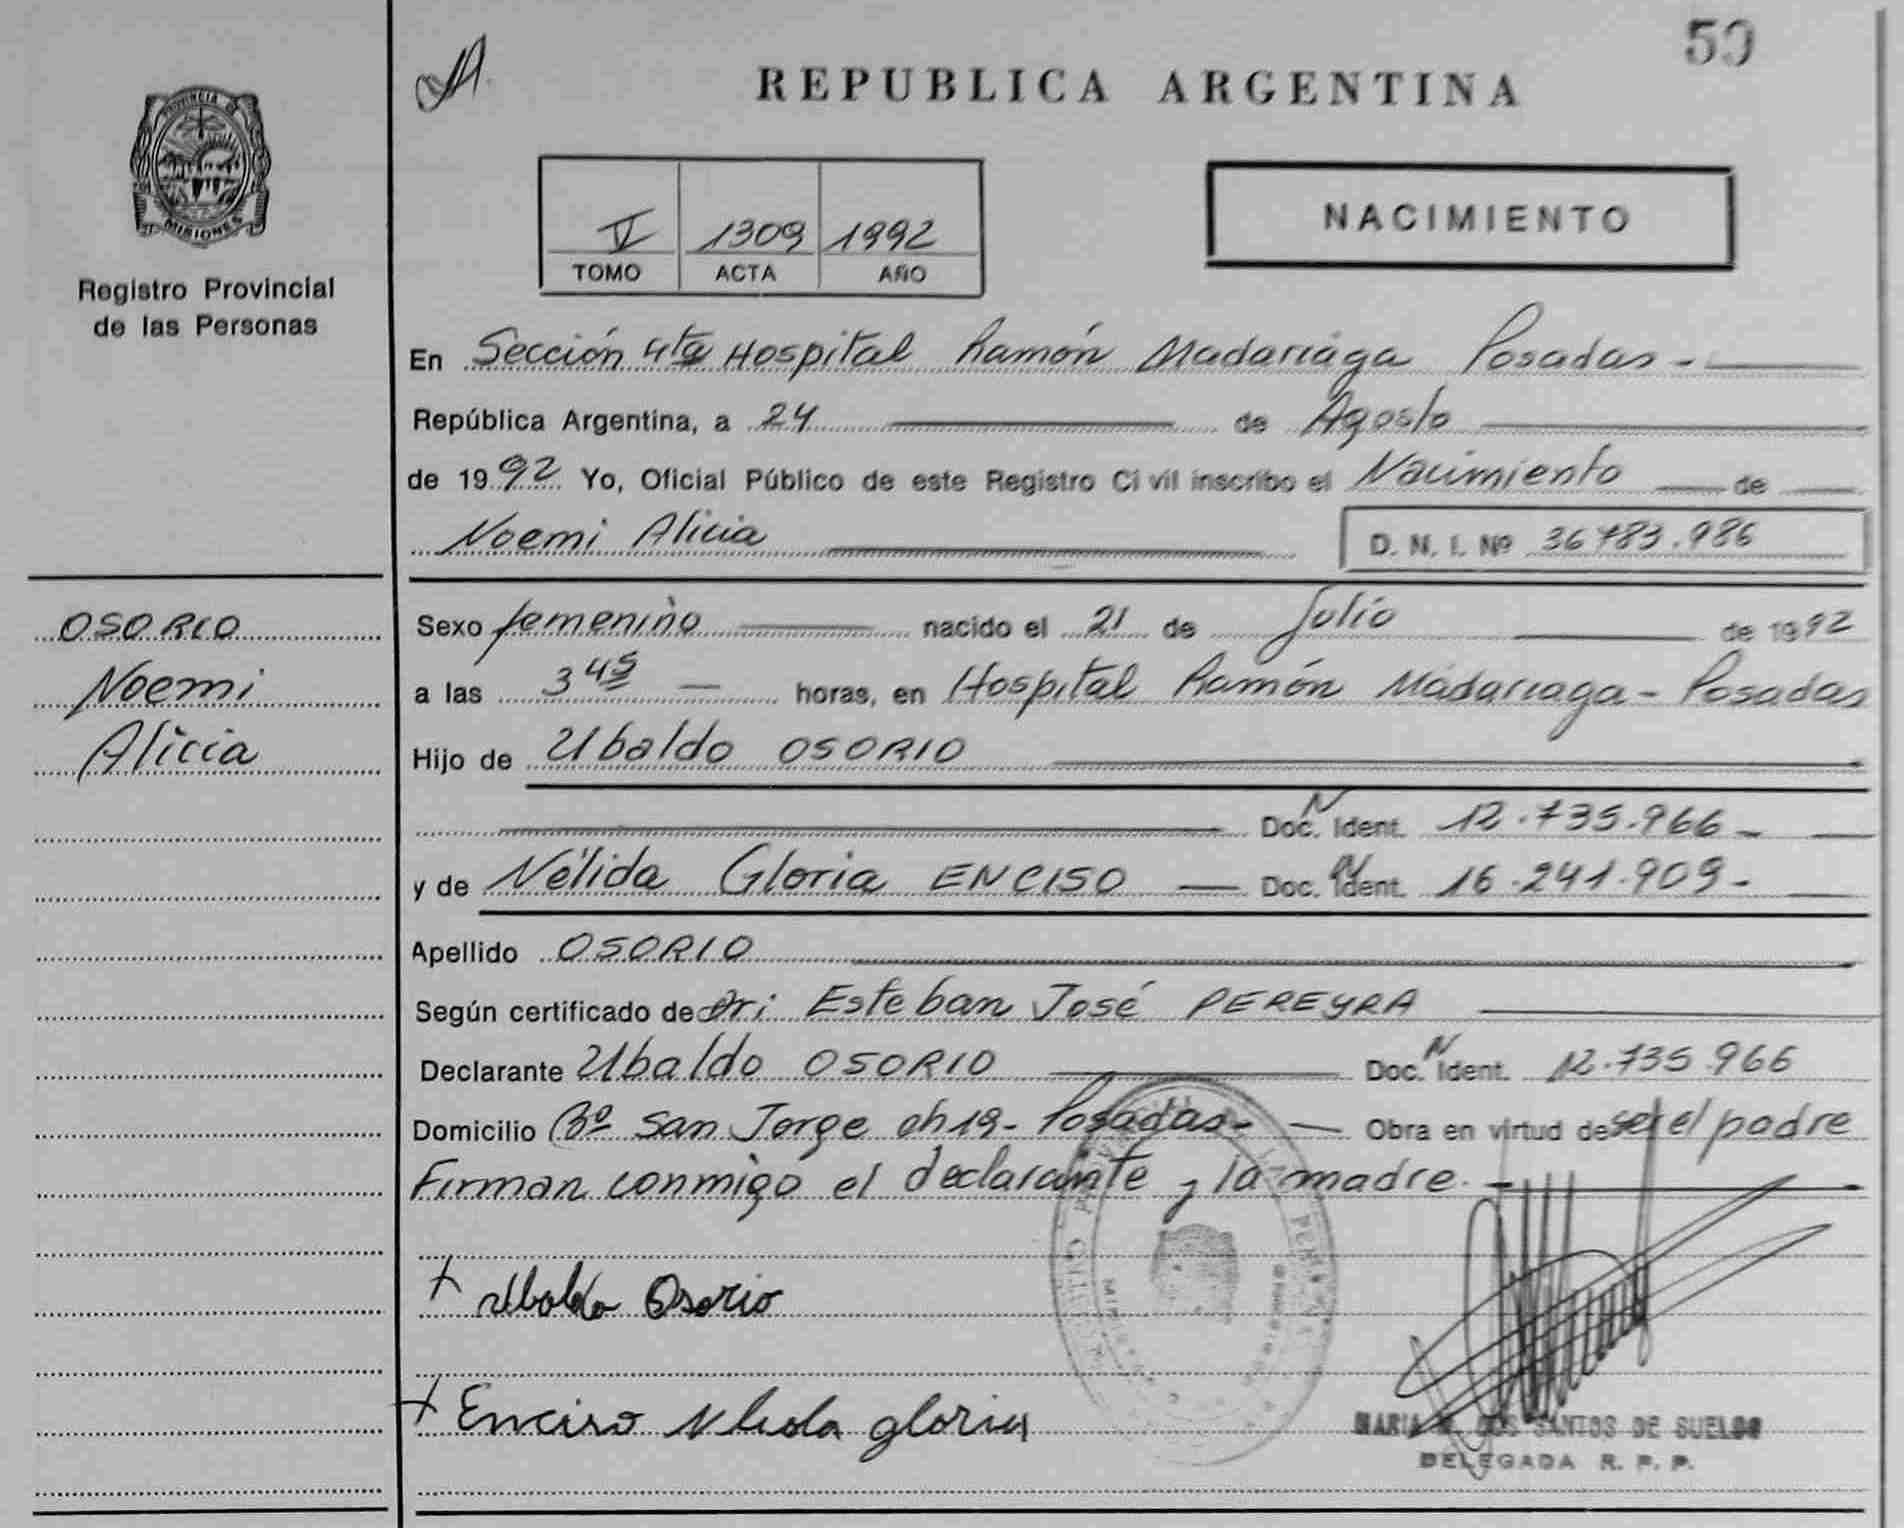 50
REPUBLICA ARGENTINA
PROVINCIA DE
MISIONES
Registro Provincial
de las Personas
V 1309 1992
TOMO ACTA AÑO
NACIMIENTO
En Sección 4ta Hospital Ramón Madariaga Posadas -
República Argentina, a 24 de Agosto
de 1992 Yo, Oficial Público de este Registro Civil inscribo el Nacimiento de
Noemi Alicia D. N. I. Nº 36.783.986
OSORIO
Noemi
Alicia
Sexo femenino nacido el 21 de Julio de 1992
a las 3 45 — horas, en Hospital Ramón Madariaga - Posadas
Hijo de Ubaldo OSORIO
Doc. N Ident. 12.735.966 -
y de Nélida Gloria ENCISO — Doc. N Ident. 16.241.909 -
Apellido OSORIO
Según certificado de Esteban José PEREYRA
Declarante Ubaldo OSORIO Doc. N Ident. 12.735.966
Domicilio Bº San Jorge ch 19 - Posadas - Obra en virtud de ser el padre
Firman conmigo el declarante y la madre. -
+ Ubaldo Osorio
+ Enciso Nelida gloria
MARIA DOS SANTOS DE SUELDO
DELEGADA R. P. P.